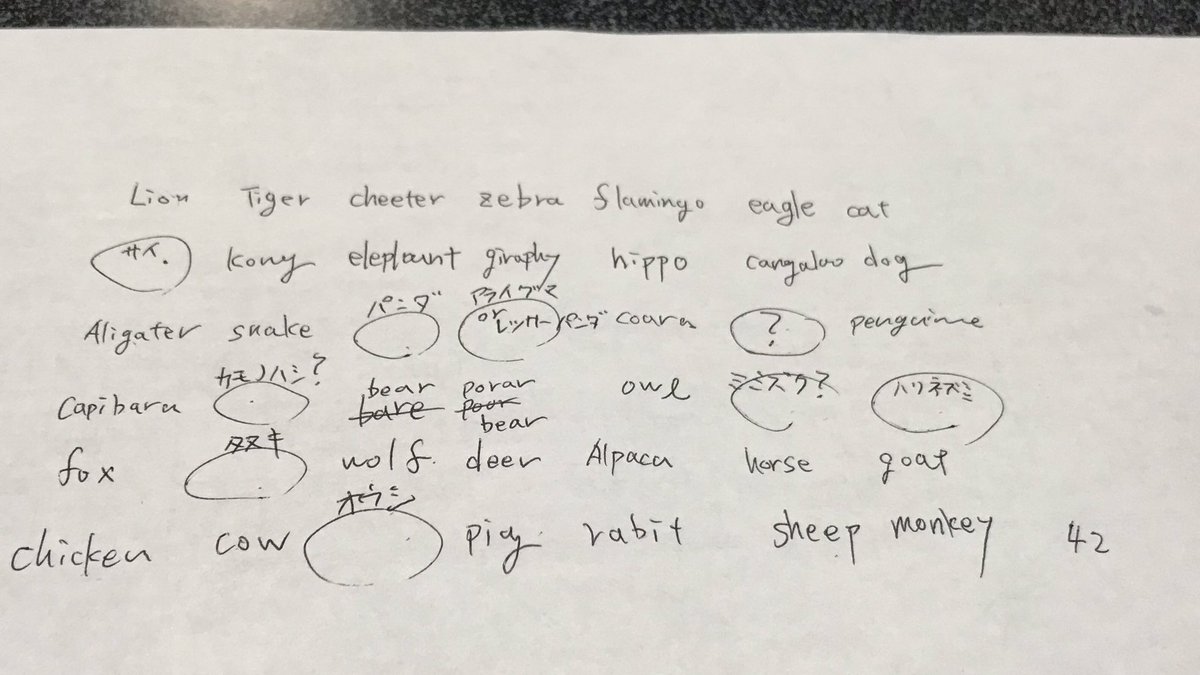 Lion Tiger cheeter zebra flamingo eagle cat
サイ. kony elephant giraphy hippo cangaloo dog
パンダ アライグマ
Aligater snake or レッサーパンダ coara ? penguine
カモノハシ? bear porar ミミズク? ハリネズミ
Capibara bare poor owl
bear
タヌキ
fox wolf. deer Alpaca horse goat
オウシ
chicken cow pig rabit sheep monkey 42